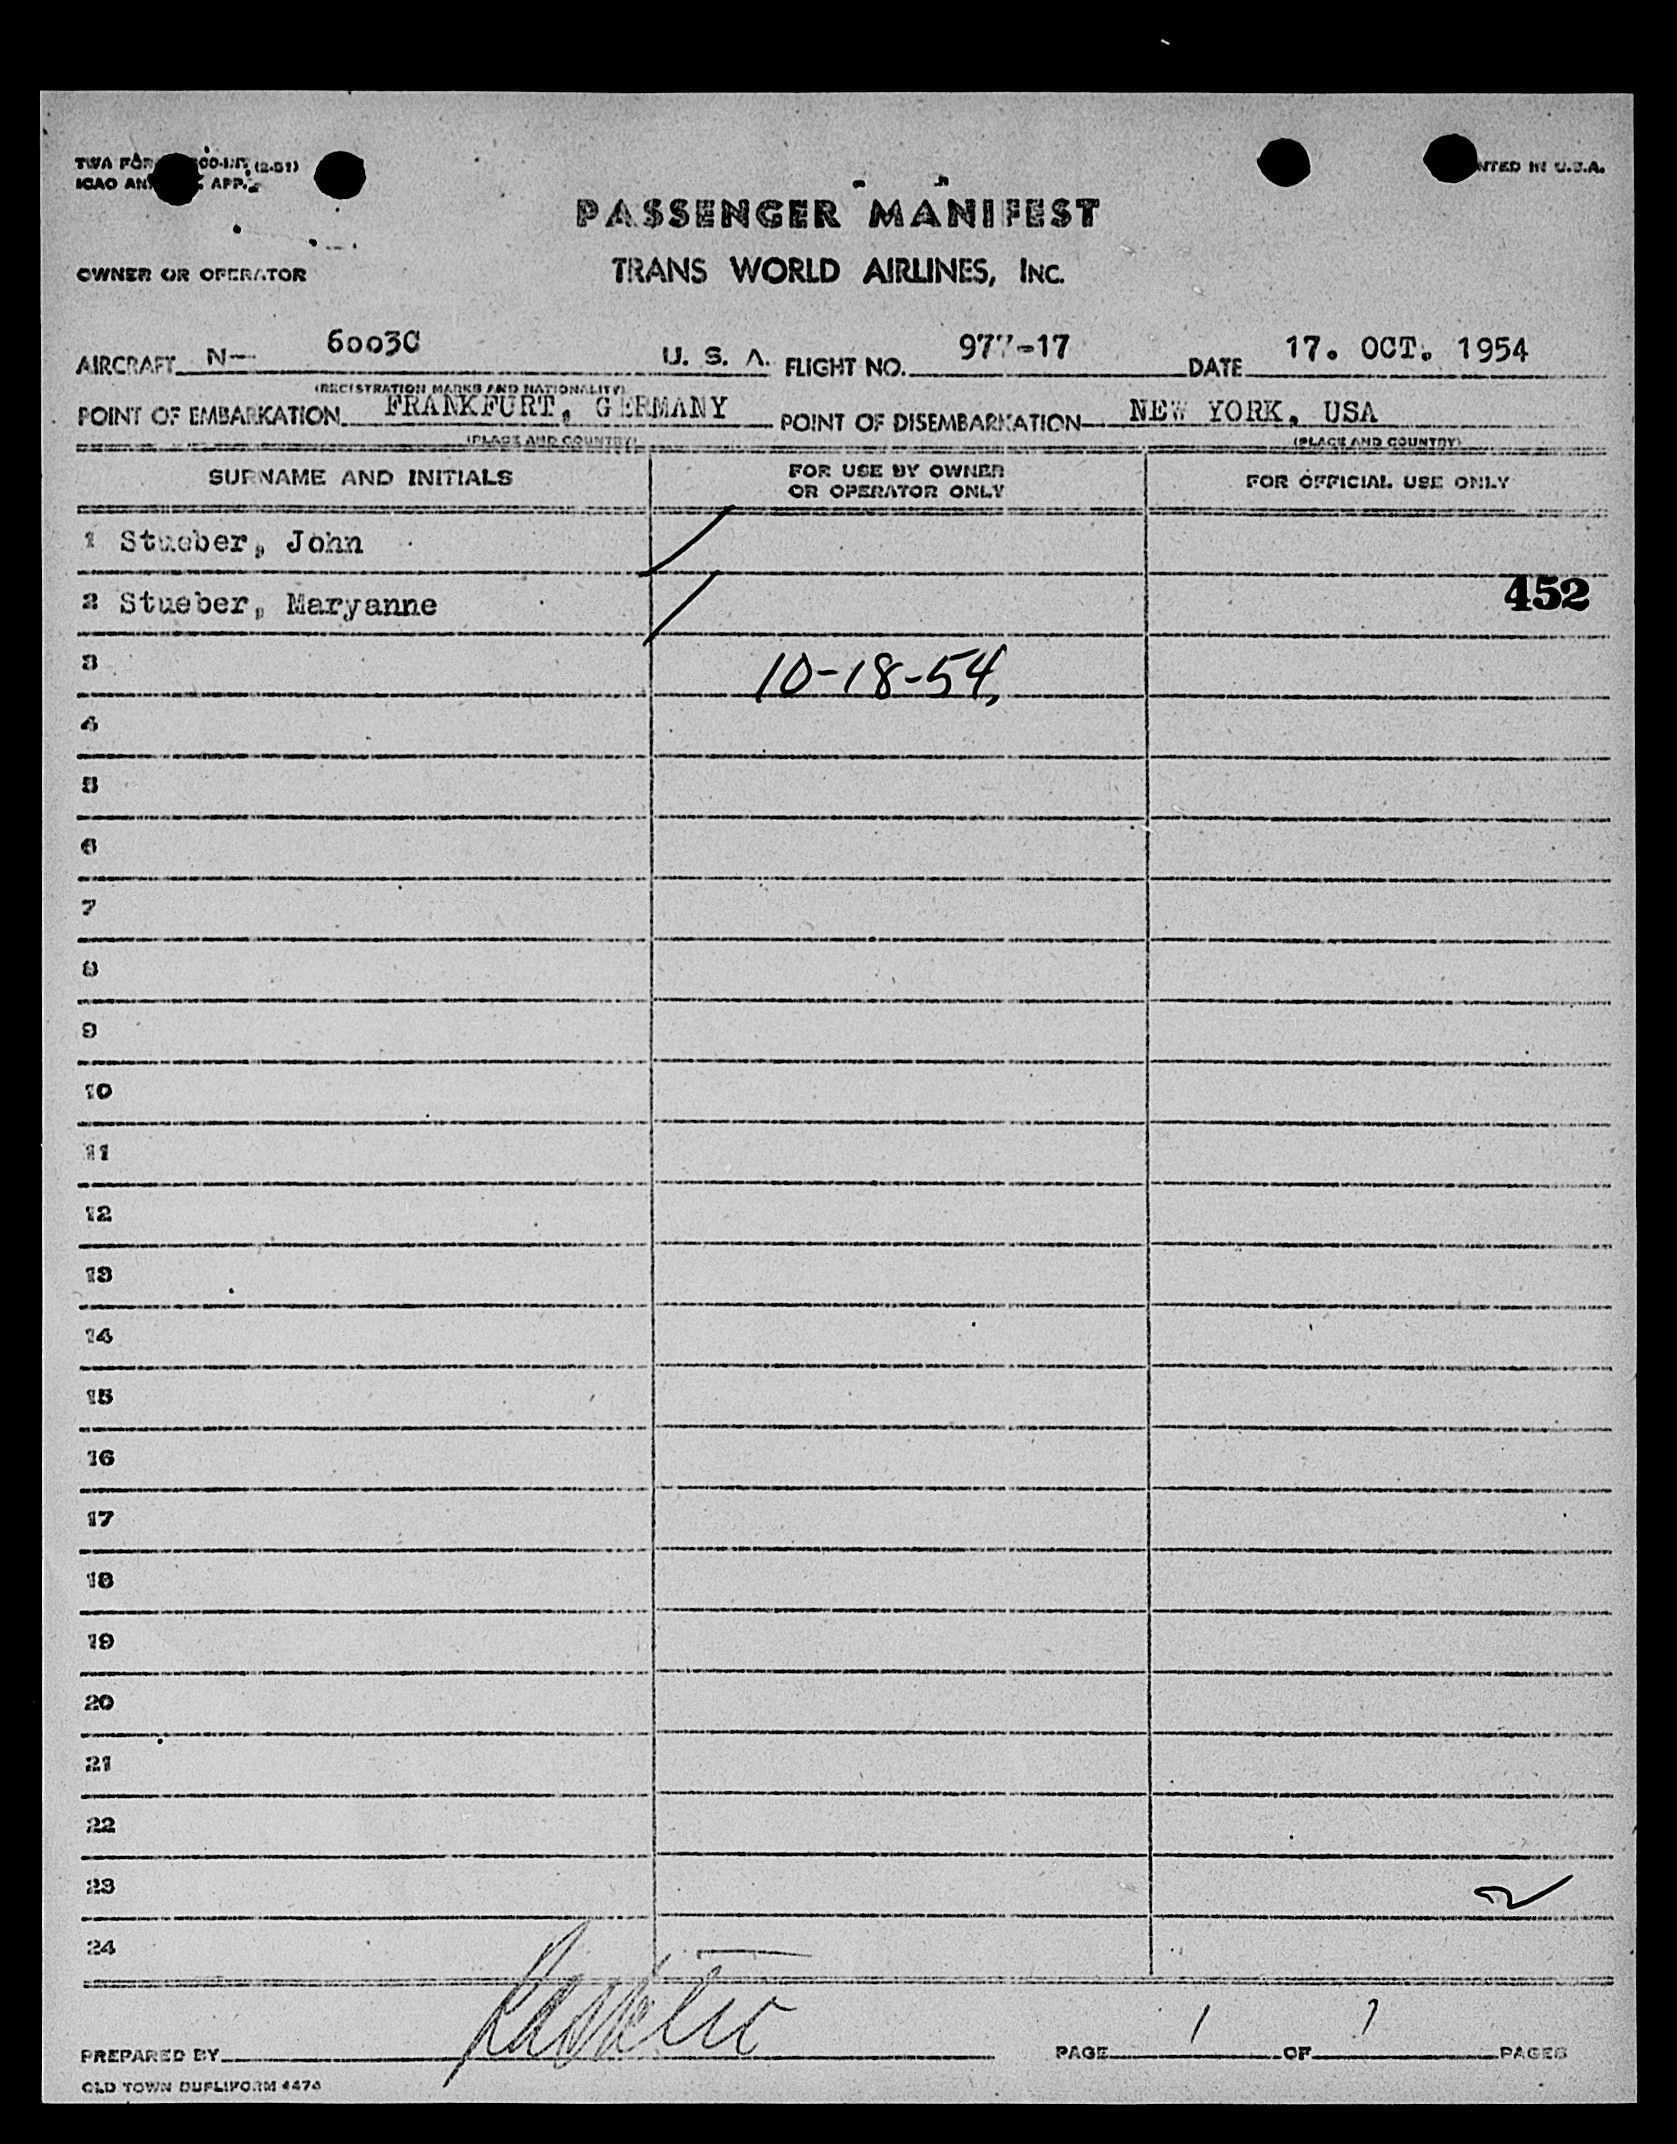 TWA FOR 00-INT. (2-51)
ICAO AN APP. 2
NTED IN U.S.A.
PASSENGER MANIFEST
OWNER OR OPERATOR TRANS WORLD AIRLINES, INC.
AIRCRAFT N- 6003C U. S. A. FLIGHT NO. 977-17 DATE 17. OCT. 1954
(REGISTRATION MARKS AND NATIONALITY)
POINT OF EMBARKATION FRANKFURT, GERMANY POINT OF DISEMBARKATION NEW YORK, USA
(PLACE AND COUNTRY) (PLACE AND COUNTRY)
SURNAME AND INITIALS FOR USE BY OWNER OR OPERATOR ONLY FOR OFFICIAL USE ONLY
1 Stueber, John
2 Stueber, Maryanne 452
3 10-18-54
4
5
6
7
8
9
10
11
12
13
14
15
16
17
18
19
20
21
22
23
24
PREPARED BY PAGE 1 OF 1 PAGES
OLD TOWN DUPLIFORM 4474